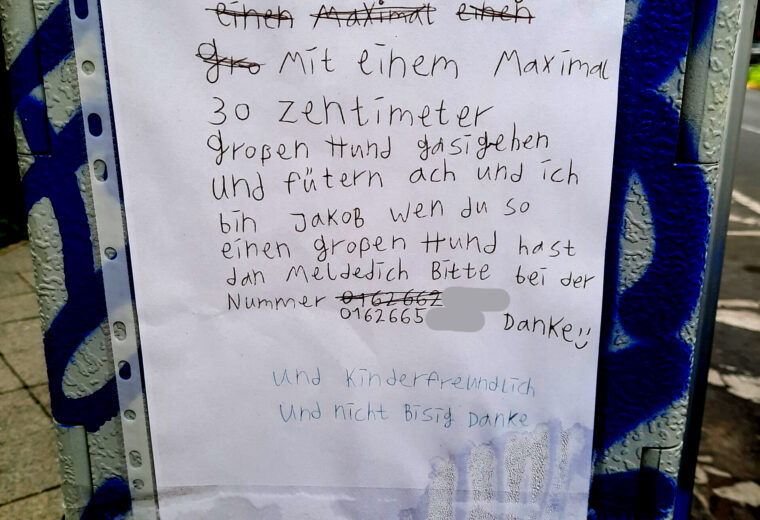 einen Maximal einen
gro Mit einem Maximal
30 zentimeter
großen Hund gasigehen
und fütern ach und ich
bin JAKOB wen du so
einen großen Hund hast
dan Meldedich Bitte bei der
Nummer 0162662
0162665 Danke
und Kinderfreundlich
und nicht Bisig Danke